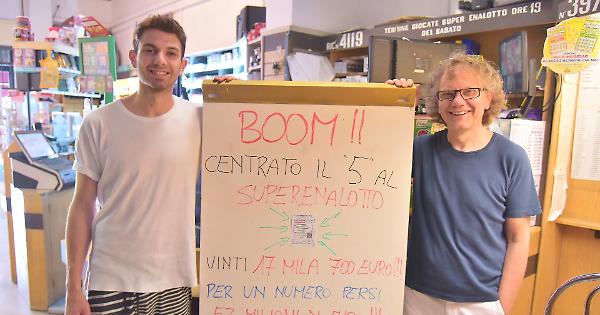 TERMINE GIOCATE SUPER ENALOTTO ORE 19
DEL SABATO
RIC. 4119
N° 397
BOOM !!
CENTRATO IL "5" AL
SUPERENALOTTO
VINTI 17 MILA 700 EURO!!!
PER UN NUMERO PERSI